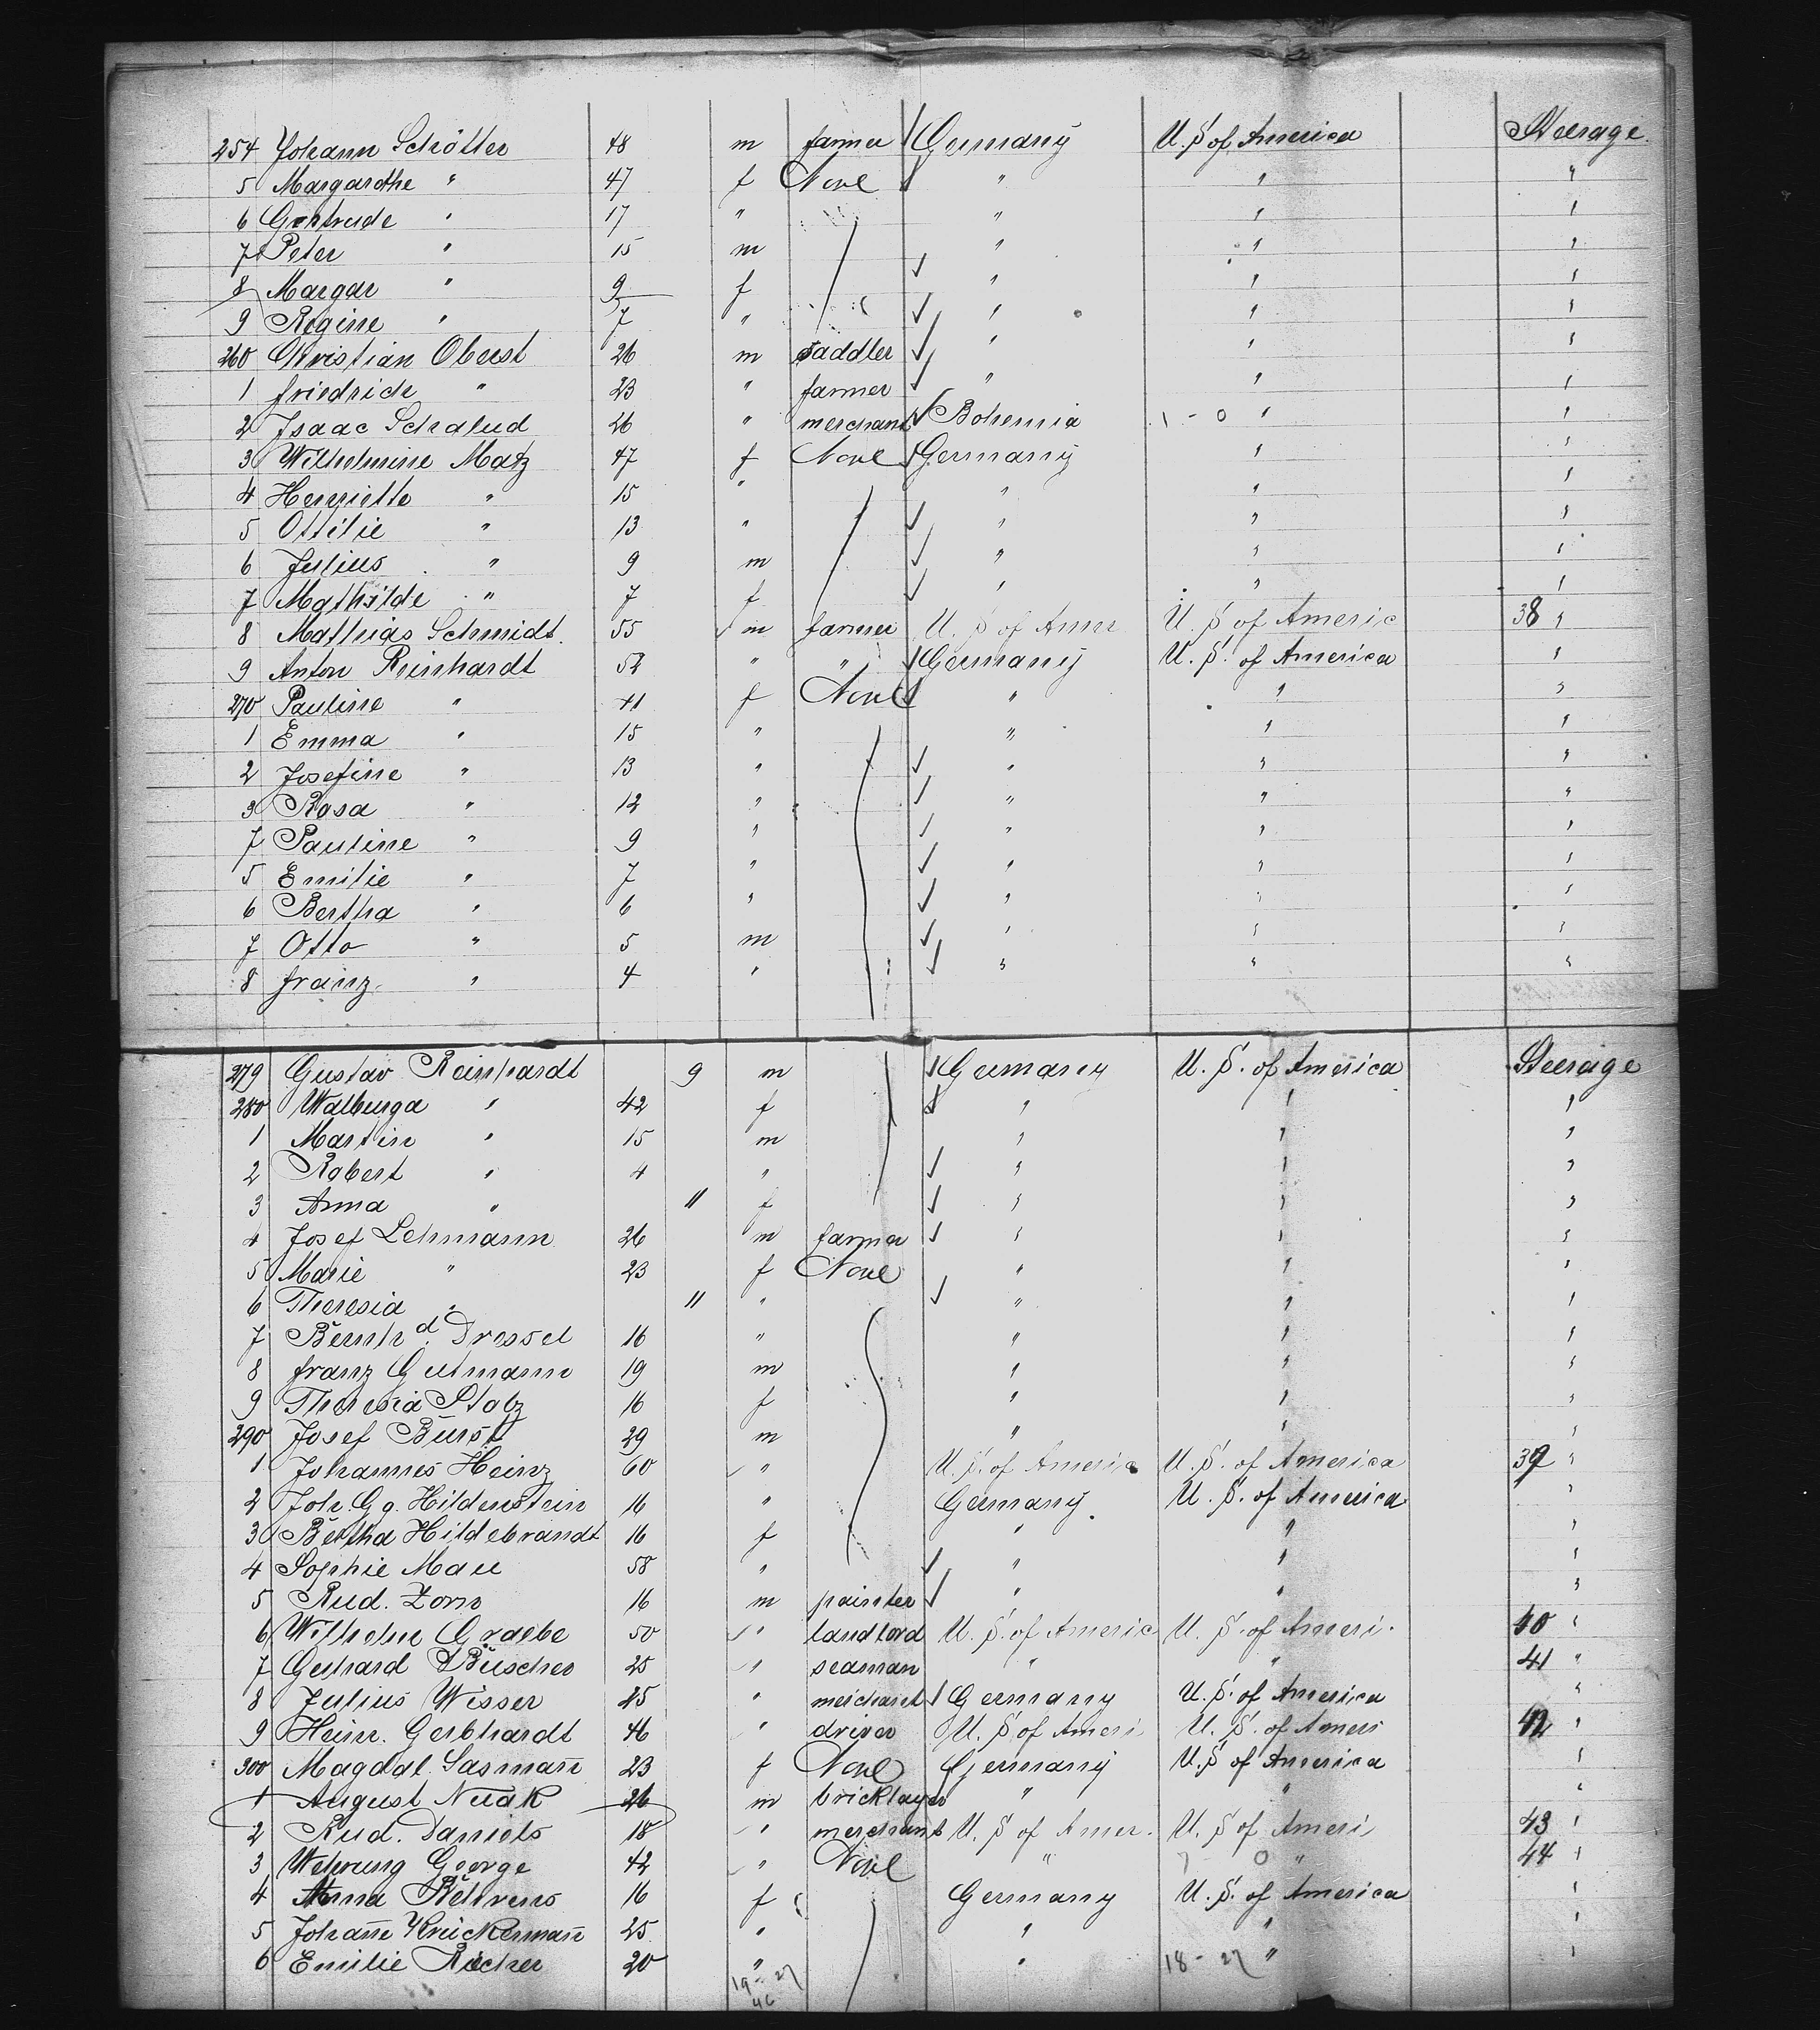 254 Johann Schötter 48 m farmer Germany U. S of America Steerage
5 Margarethe " 47 f None " " "
6 Gertrude " 17 " " " "
7 Peter " 15 m " " "
8 Margar " 9 f " " "
9 Regine " 7 " " " "
260 Christian Oberst 26 m saddler " " "
1 friedrich " 23 " farmer " " "
2 Isaac Schalud 26 " merchant Bohemia 1 - 0 " "
3 Wilhelmine Matz 47 f None Germany " "
4 Henriette " 15 " " " "
5 Ottilie " 13 " " " "
6 Julius " 9 m " " "
7 Mathilde " 7 f " " "
8 Mathias Schmidt 55 m farmer U. S of Amer U. S of Americ 38 "
9 Anton Reinhardt 52 " " Germany U. S. of America "
270 Pauline " 41 f None " " "
1 Emma " 15 " " " "
2 Josefine " 13 " " " "
3 Rosa " 12 " " " "
7 Pauline " 9 " " " "
5 Emilie " 7 " " " "
6 Bertha " 6 " " " "
7 Otto " 5 m " " "
8 franz " 4 " " " "
279 Gustav Reinhardt 9 m Germany U. S. of America Steerage
280 Walburga " 42 f " " "
1 Martin " 15 m " " "
2 Robert " 4 " " " "
3 Anna " 11 f " " "
4 Josef Lehmann 26 m farmer " " "
5 Marie " 23 f None " " "
6 Theresia " 11 " " " "
7 Bernhd. Dressel 16 " " " "
8 franz Gutmann 19 m " " "
9 Theresia Stolz 16 f " " "
290 Josef Burst 29 m " " "
1 Johannes Heinz 60 " U. S. of America U. S. of America 39 "
2 Joh. Gg. Hildenstein 16 " Germany U. S. of America "
3 Bertha Hildebrandt 16 f " " "
4 Sophie Mau 58 " " " "
5 Rud. Zorn 16 m painter " " "
6 Wilhelm Graebe 50 " landlord U. S. of Americ U. S. of Ameri. 40 "
7 Gerhard Büscher 25 " seaman " " 41 "
8 Julius Wisser 25 " merchant Germany U. S. of America "
9 Heinr. Gerbhardt 46 " driver U. S of Ameri U. S. of Ameri 42 "
300 Magdal. Sasmann̄ 23 f None Germany U. S of America "
1 August Nuak 26 m bricklayer " " "
2 Rud. Daniels 18 " merchant U. S of Amer. U. S of Ameri 43 "
3 Wehrung George 42 " None " 0 " 44 "
4 Anna Behrens 16 f Germany U. S. of America "
5 Johan̄e Krückeman̄ 25 " " " "
6 Emilie Richer 20 " " 18 - 27 " "
19 - 27
46